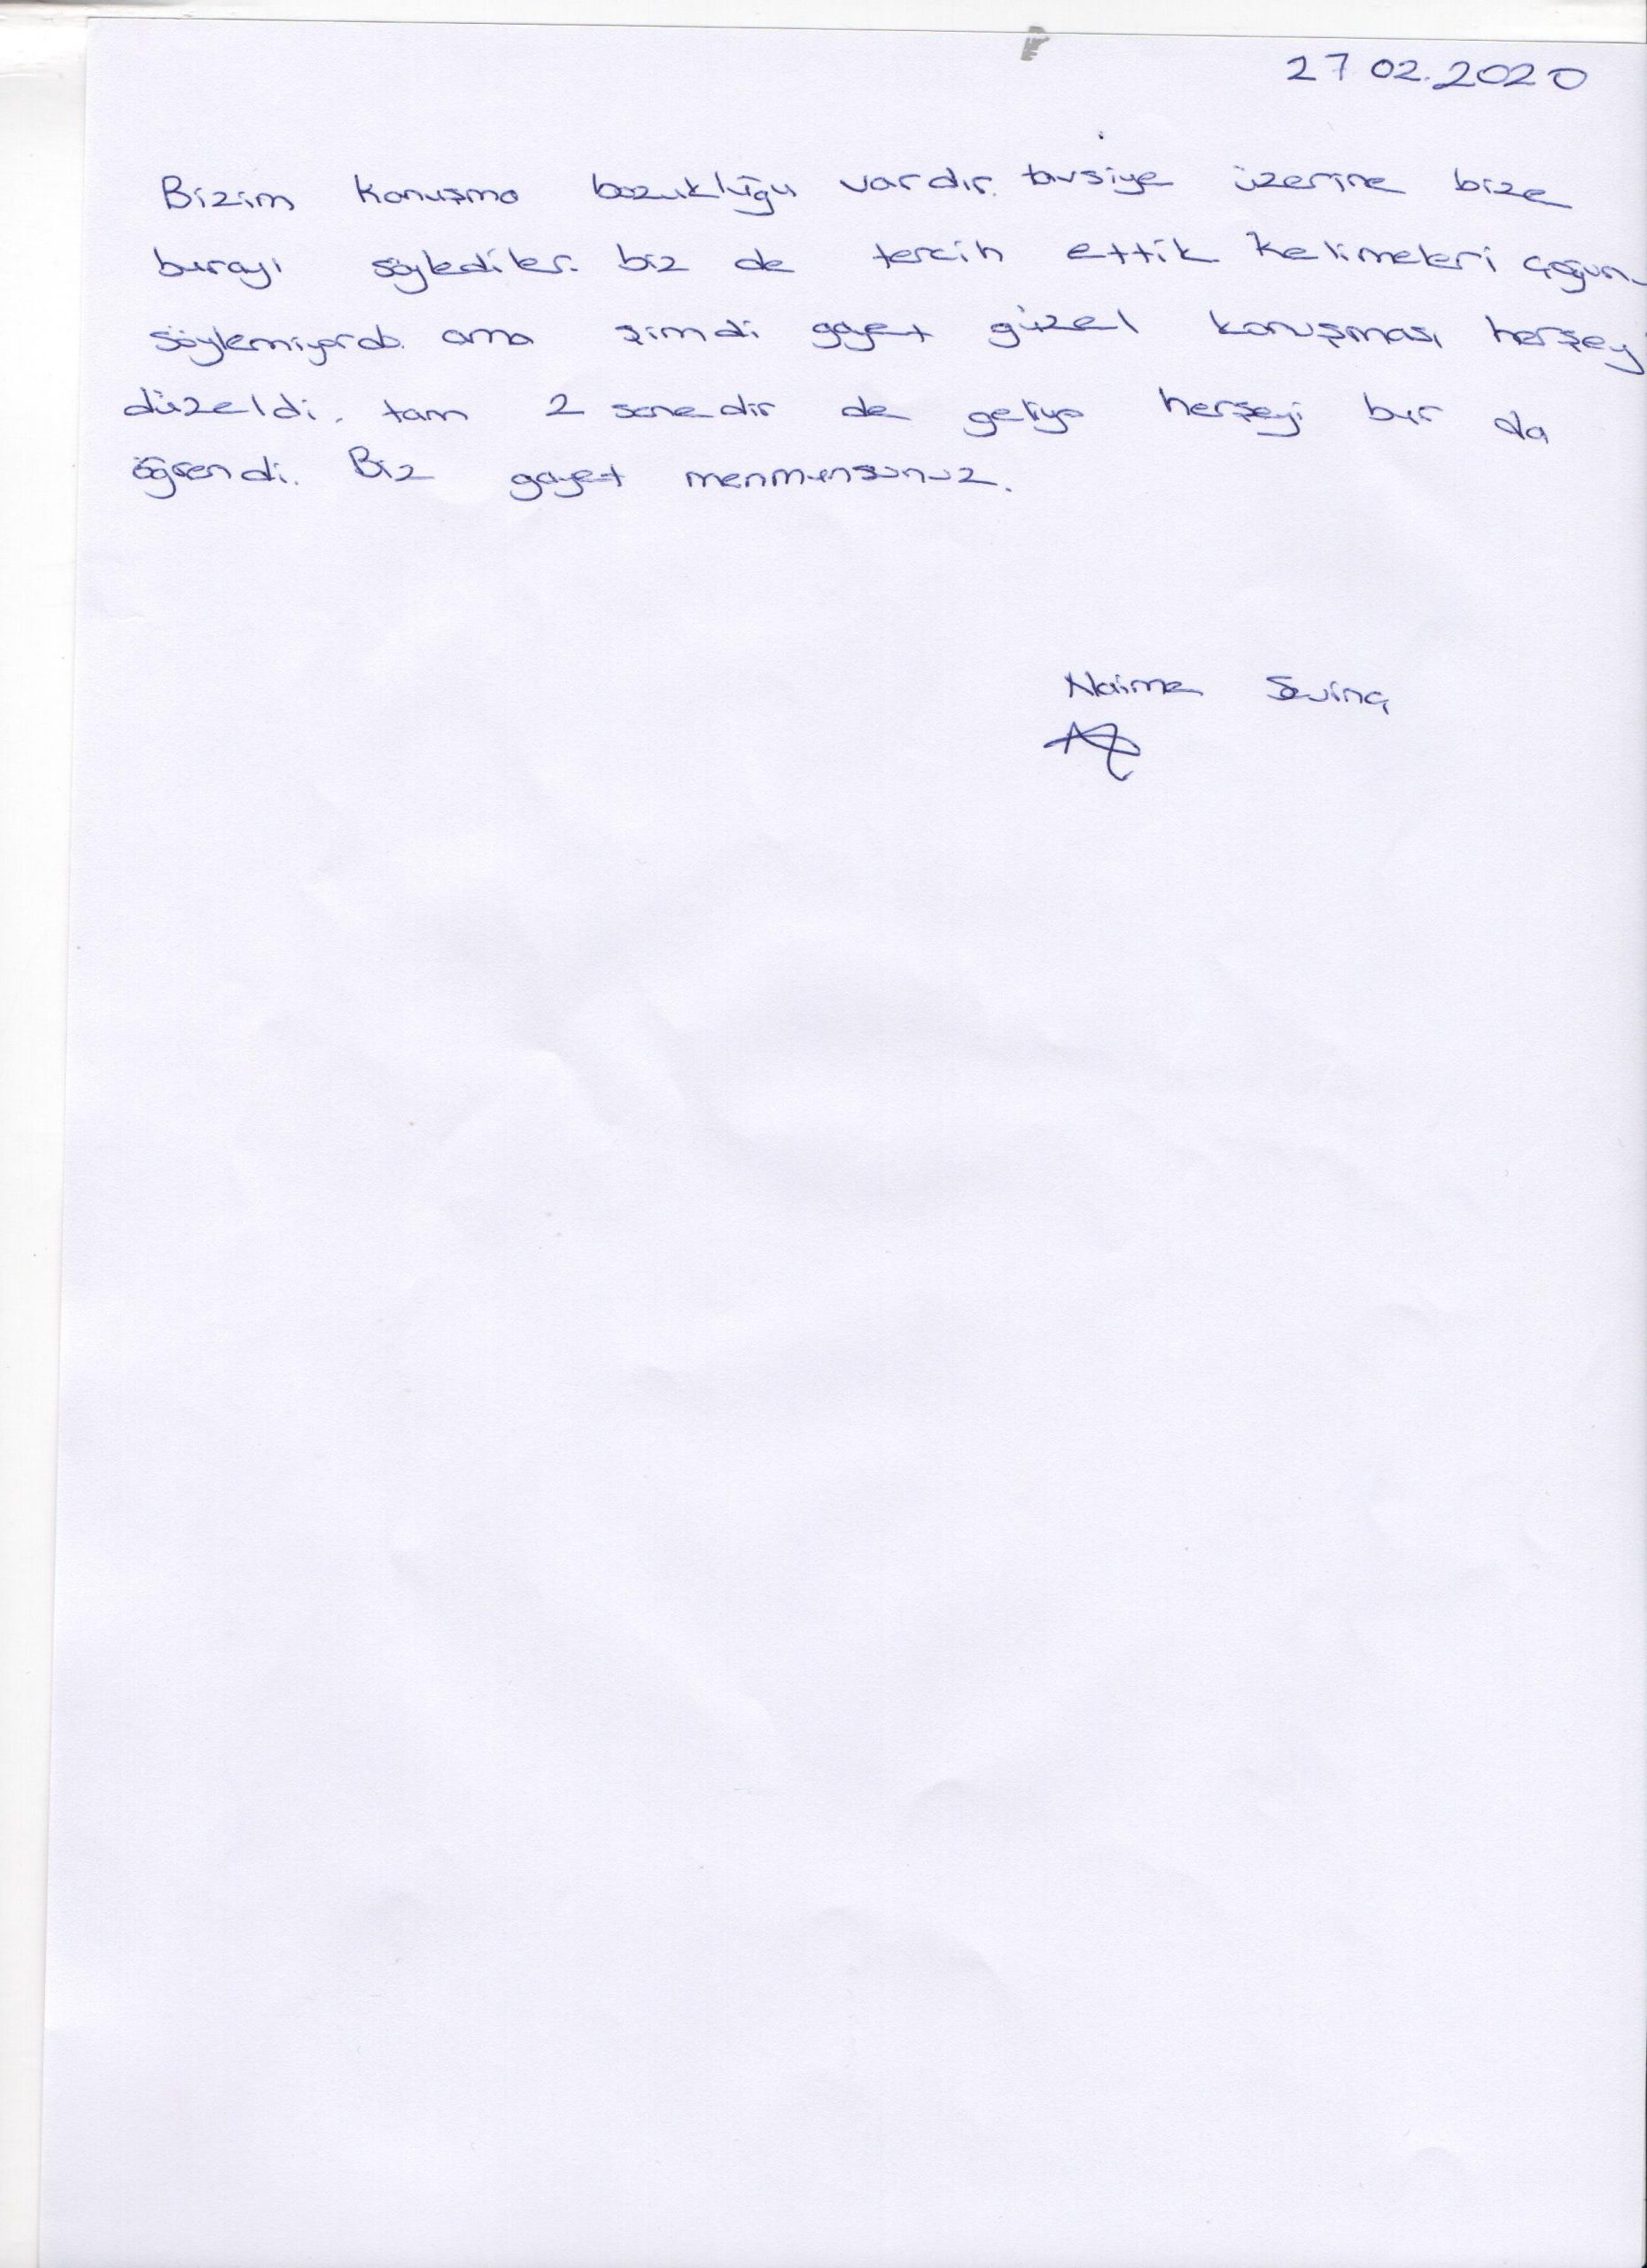 27 02.2020
Bizim konuşma bozukluğu vardır. tavsiye üzerine bize
burayı söylediler. biz de tercih ettik kelimeleri çoğun
söylemiyordu. ama şimdi gayet güzel konuşması herşey
düzeldi. tam 2 senedir de geliyo herşeyi bur da
öğrendi. Biz gayet menmunsunuz.
Naime Sevinç